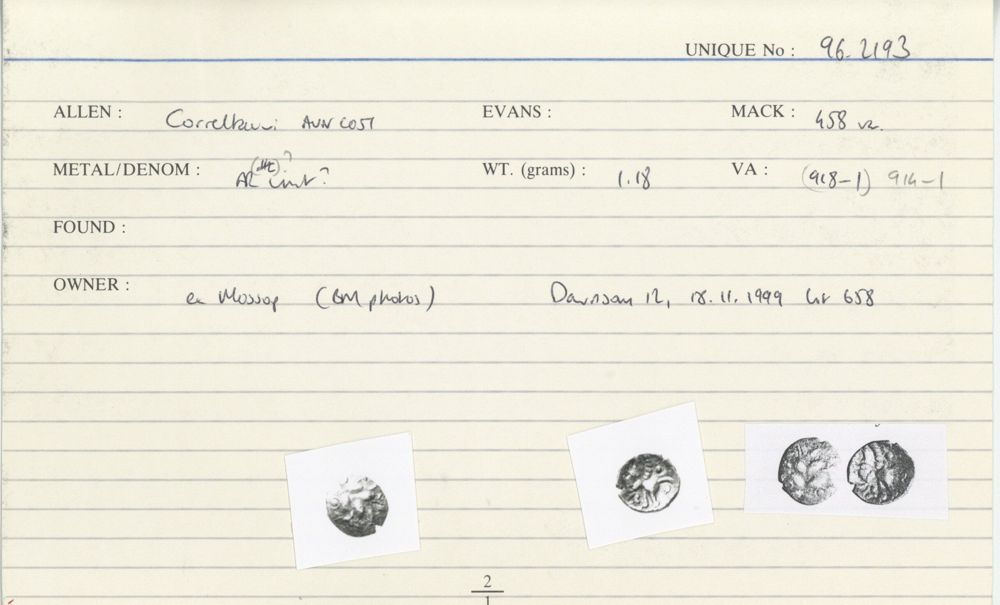 UNIQUE No : 96.2193
ALLEN : Correltauvi AVN COST EVANS : MACK : 458 va.
METAL/DENOM : AR unit? WT. (grams) : 1.18 VA : (918–1) 914–1
FOUND :
OWNER : ex Mossop (BM photos) Davisson 12, 18.11.1999 lot 658
2
1